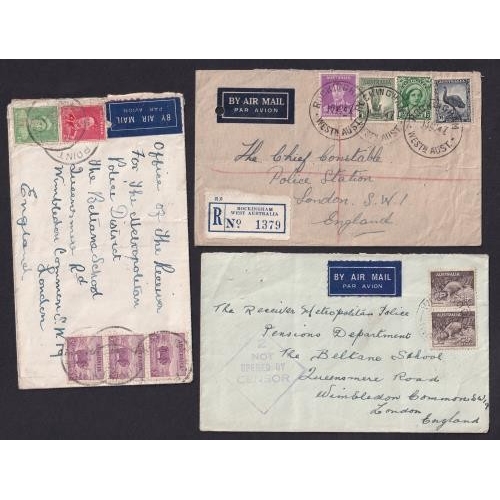 BY AIR MAIL
PAR AVION
Office of The Receiver
For The Metropolitan
Police District
The Beltane School
Queensmere Rd
Wimbledon Common S.W.19
London
England
BY AIR MAIL
PAR AVION
AUSTRALIA
WESTN AUST
The Chief Constable
Police Station
London. S.W.1
England
R.6
ROCKINGHAM
WEST AUSTRALIA
R No 1379
BY AIR MAIL
PAR AVION
AUSTRALIA
The Receiver Metropolitan Police
Pensions Department
The Beltane School
Queensmere Road
Wimbledon Common S.W.19
London
England
2
NOT
OPENED BY
CENSOR